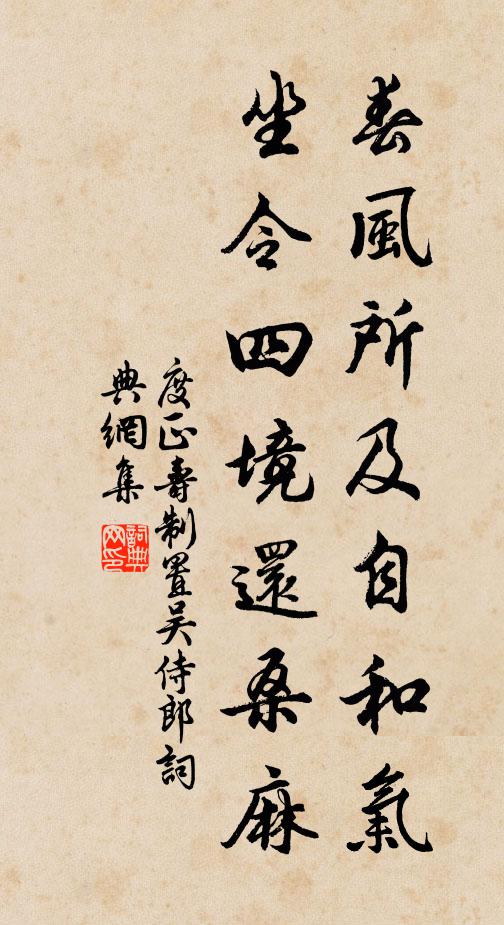 春風所及自和氣
坐令四境還桑麻
度正壽制置吴侍郎詞
典網集
詞典
网印